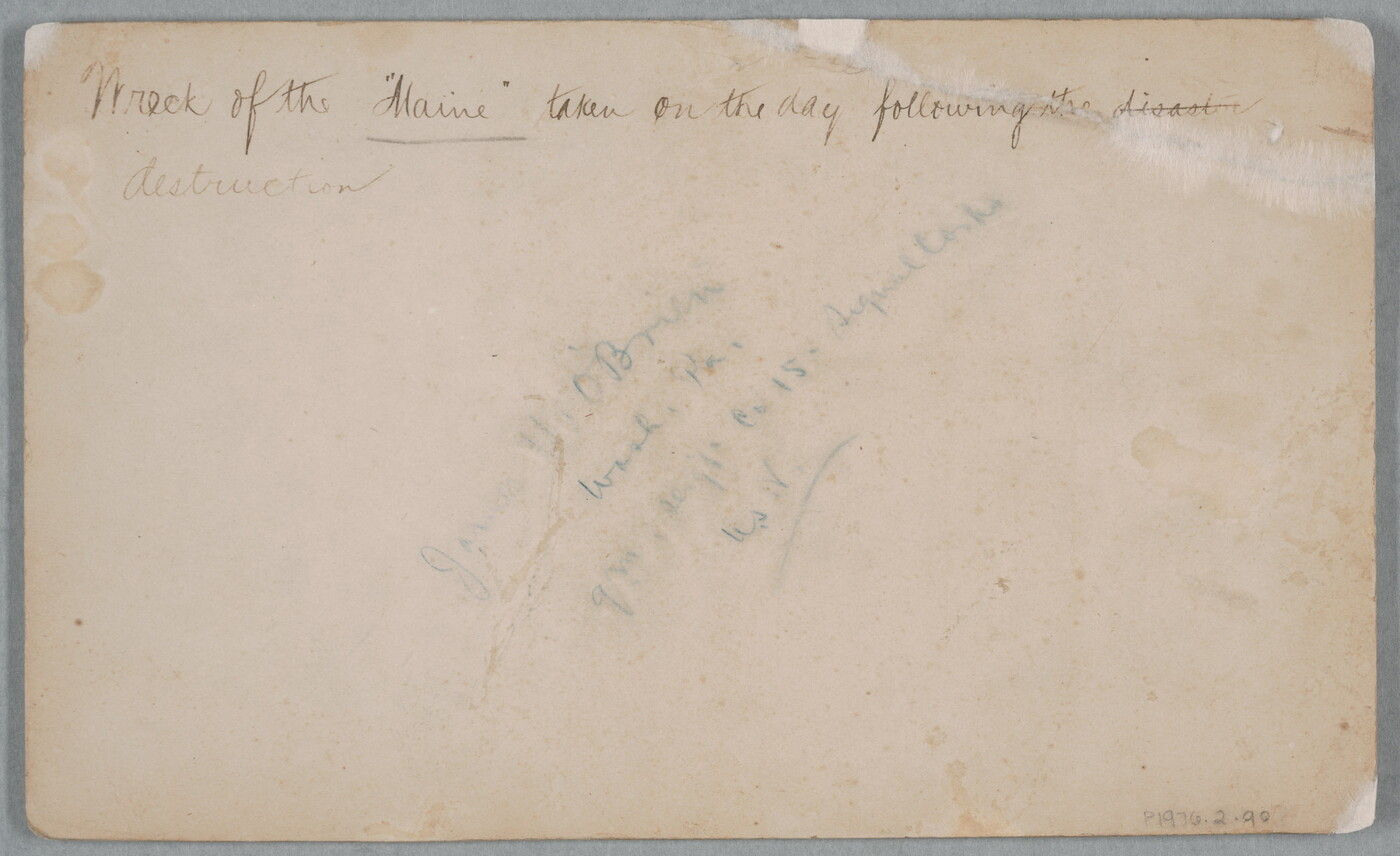 Wreck of the "Maine" taken on the day following the disast
destruction
James M. O'Brien
Wash. Pa.
Co 15. Signal Corps
P1976.2.90